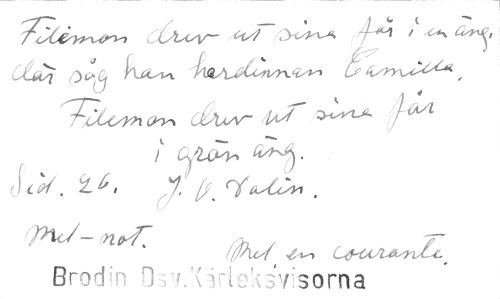 Filemon drev ut sina får i en äng.
där såg han herdinnan Camilla.
Filemon drev ut sina får
i grön äng.
Sid. 26. J. O. Valin.
Mel-not. Mel. en courante.
Brodin Dsv. Kärleksvisorna